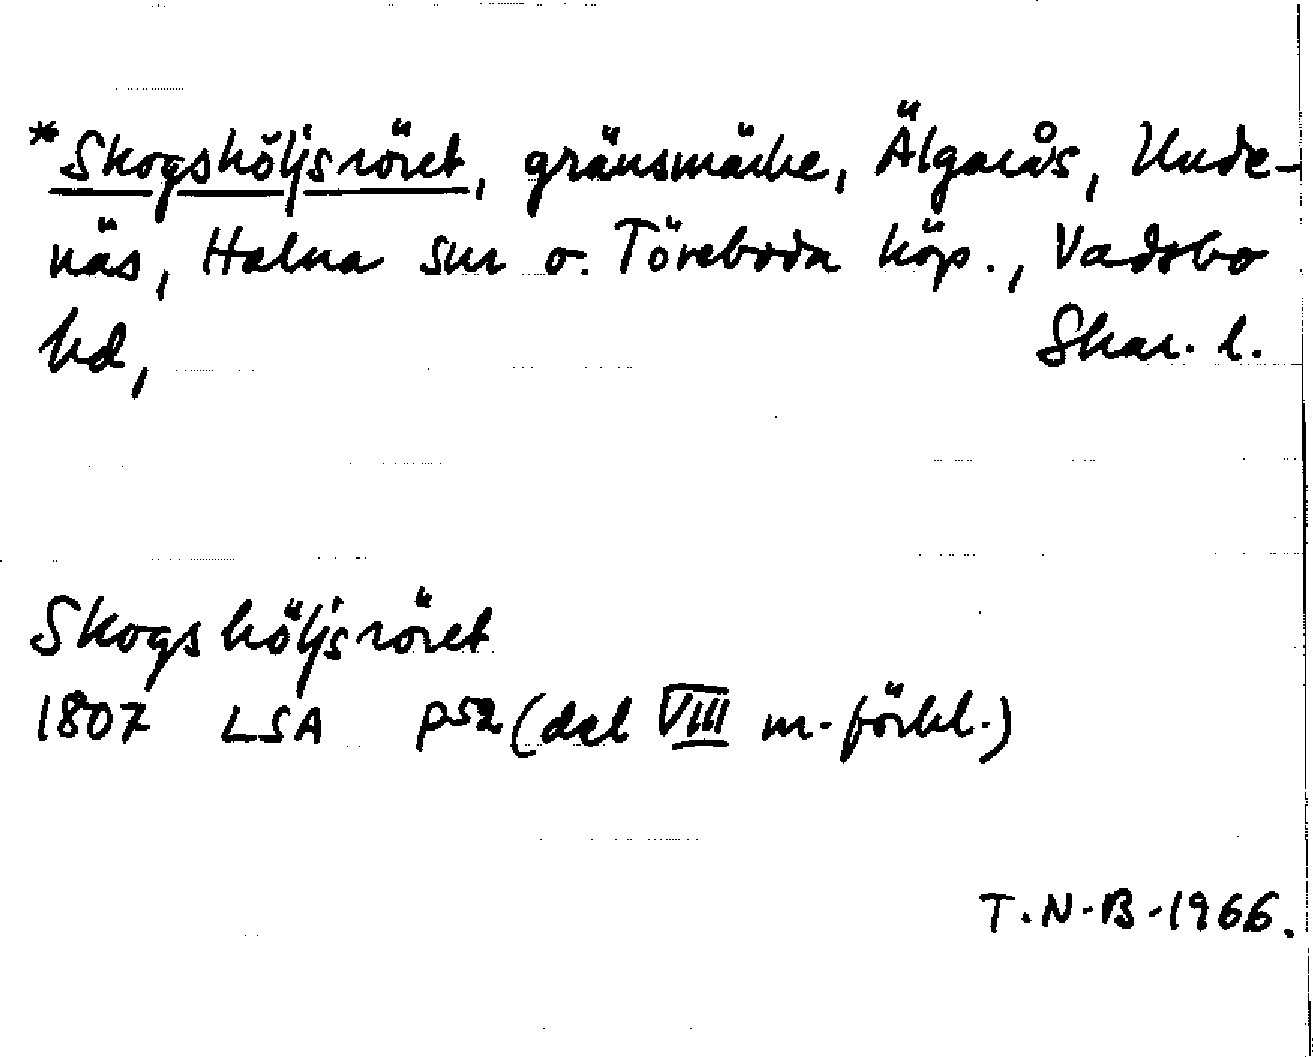 *Skogshöljsröret, gränsmärke, Älgarås, Unde-
näs, Halna snr o. Töreboda köp., Vadsbo
hd, Skar. l.
Skogshöljsröret
1807 LSA P52 (del VIII m. förkl.)
T.N-B-1966.